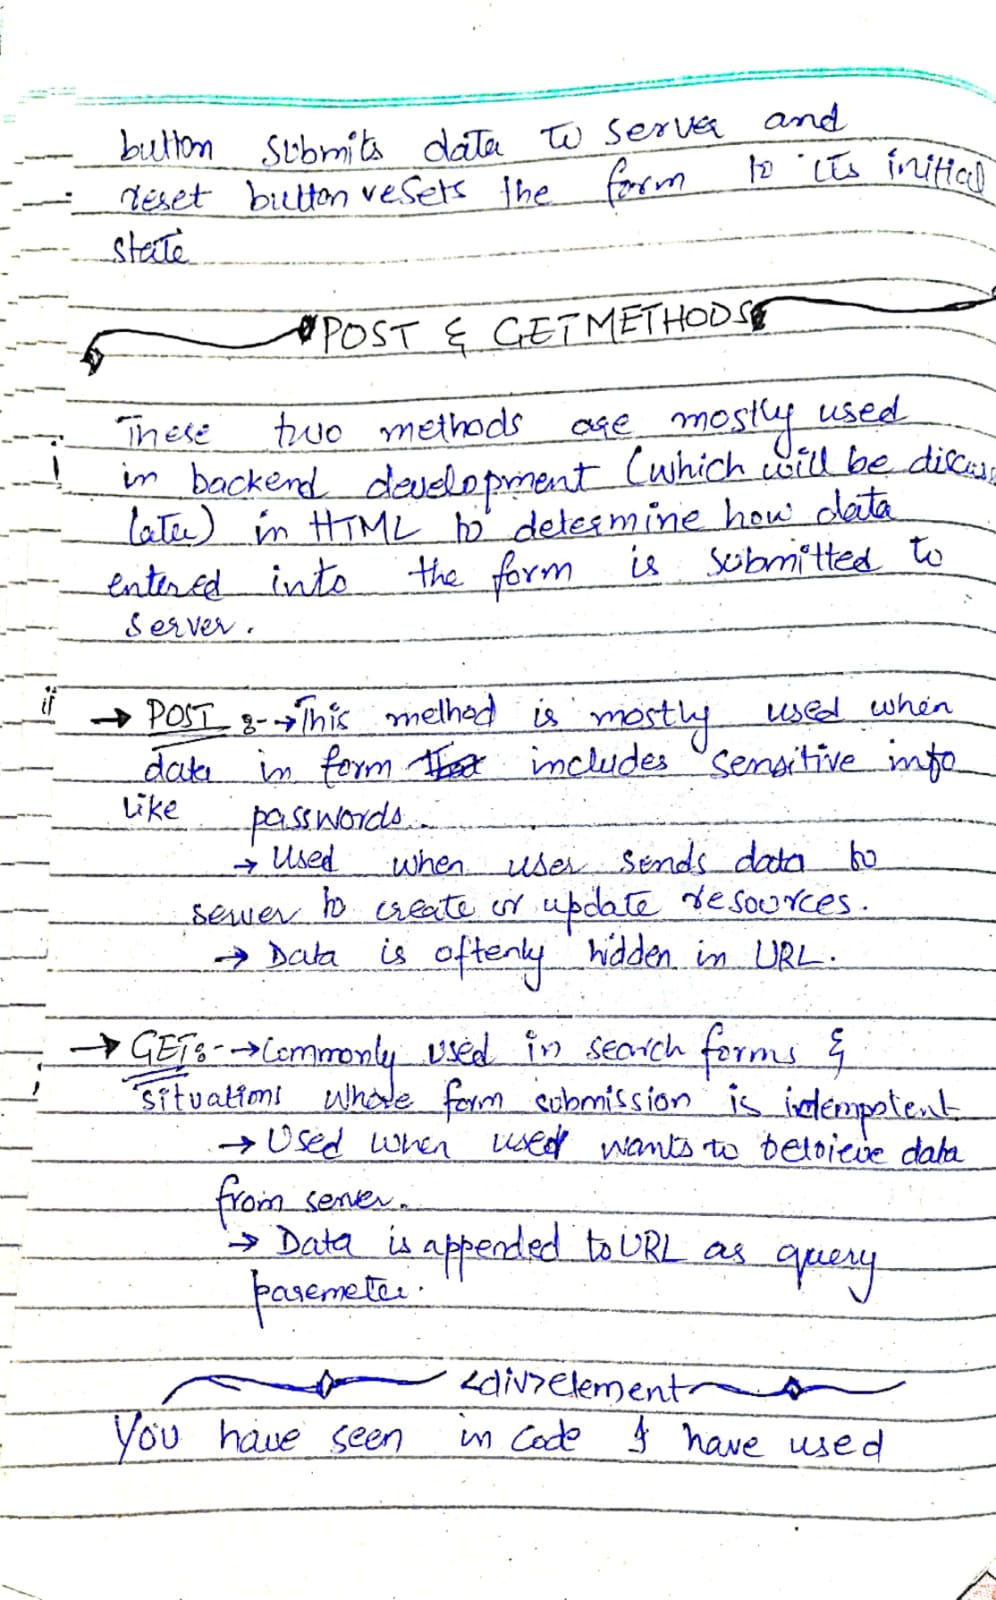 button submits data to server and
reset button resets the form to its initial
state
POST & GET METHODS
These two methods are mostly used
in backend development (which will be discus
later) in HTML to determine how data
entered into the form is submitted to
server.
→ POST :- → This method is mostly used when
data in form includes sensitive info
like passwords.
→ Used when user sends data to
server to create or update resources.
→ Data is oftenly hidden in URL.
→ GET :- → Commonly used in search forms &
situations where form submission is idempotent
→ Used when used wants to retrieve data
from server.
→ Data is appended to URL as query
paremeter.
<div> element
You have seen in code I have used